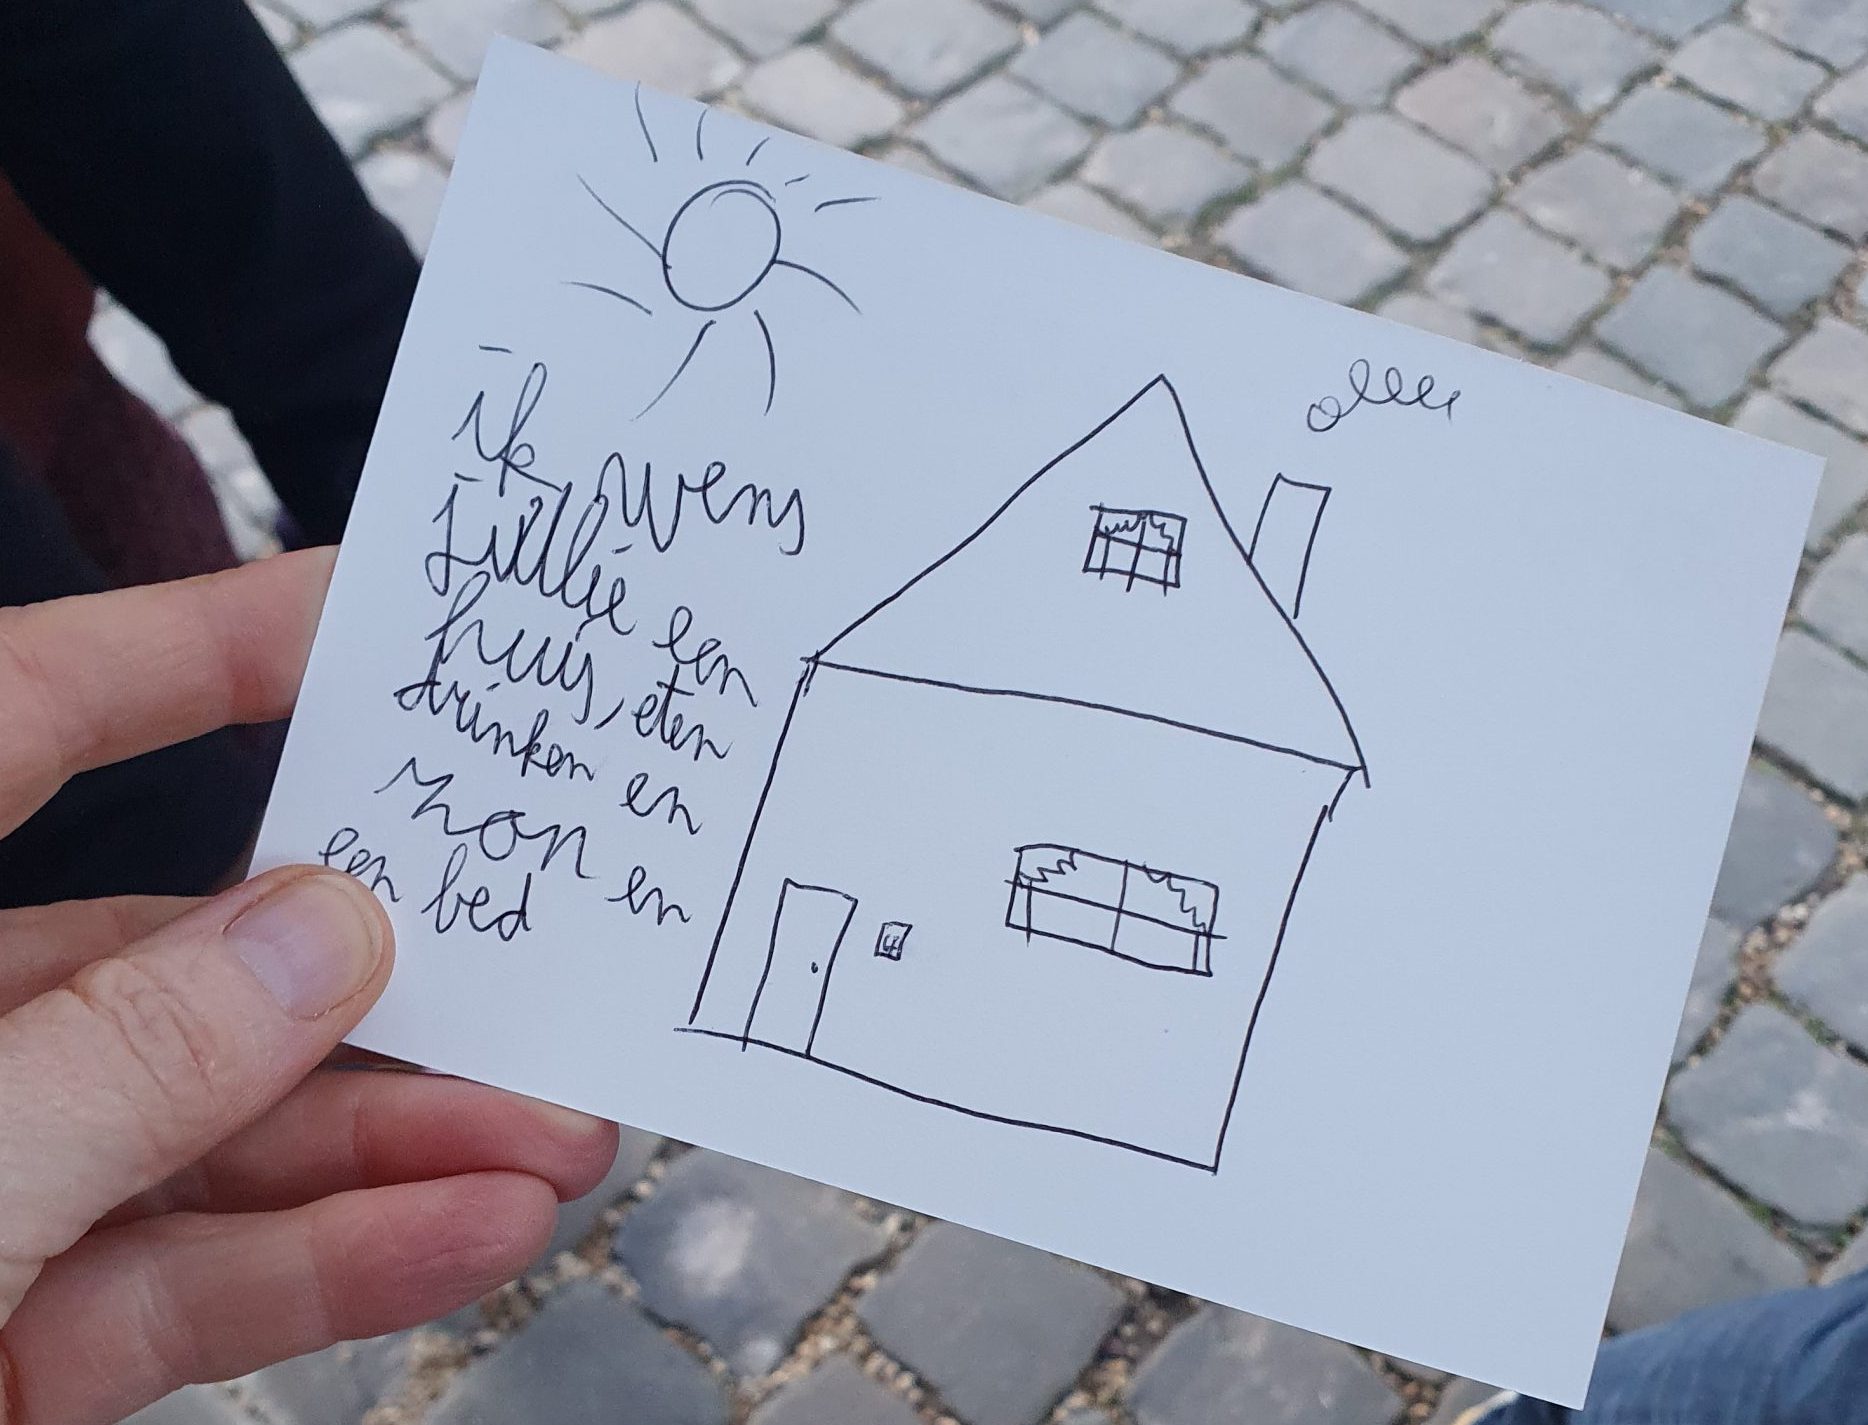 ik wens
jullie een
huis, eten
drinken en
zon en
een bed